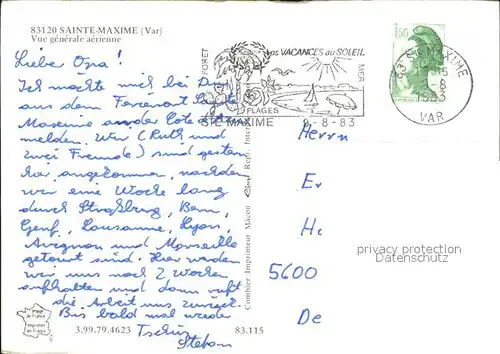 83120 SAINTE-MAXIME (Var)
Vue générale aérienne
Lieber Opa!
Ich möchte mich bei Dir
aus dem Ferienort Sainte
Maxime an der Cote d'
melden. Wir (Ruth und
zwei Freunde) sind gestern
hier angekommen, nachdem
wir eine Woche lang
durch Straßburg, Bern,
Genf, Lausanne, Lyon,
Avignon und Marseille
getourt sind. Hier werden
wir uns noch 2 Wochen
aufhalten und dann ruft
die Arbeit uns zurück.
Bis bald mal wieder
Tschüs
Stefan
Image de France
Imprimée en France
3.99.79.4623
83.115
Combier Imprimeur Mâcon
FORET
vos VACANCES au SOLEIL
MER
PLAGES
STE MAXIME 8-8-83
1,60
83 STE MAXIME
15
8
1983
VAR
Herrn
Er
He
5600
De
privacy protection
Datenschutz